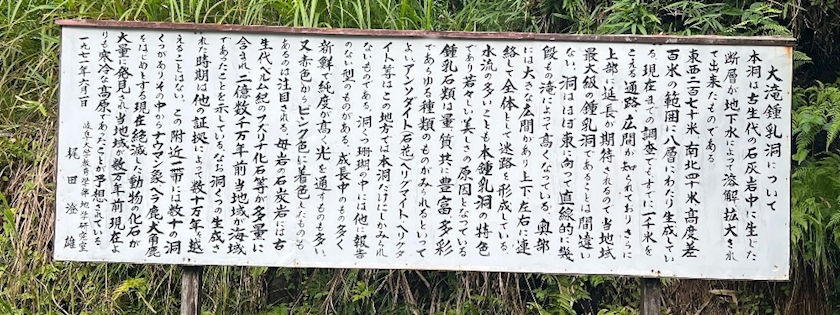 大滝鍾乳洞について
本洞は古生代の石灰岩中に生じた
断層が地下水によって溶解拡大され
て出来たものである
東西二百七十米 南北四十米 高度差
百米の範囲に八層にわたり生成してい
る 現在までの調査でもすでに一千米を
こえる通路 広間が知られておりさらに
上部に延長が期待されるので当地域
最大級の鍾乳洞であることは間違い
ない。洞はほぼ東に向って直線的に幾
段もの滝によって高くなっている 奥部
には大きな広間があり上下左右に連
絡して全体として迷路を形成している。
水流の多いことも本鍾乳洞の特色
であり若々しい美しさの原因となっている
鍾乳石類は量 質共に豊富 多彩
であらゆる種類のものがみられるといって
よい アンソダイト(石花)ヘリグマイト、ヘリクタ
イト等はこの地方では本洞だけにしかみられ
ないものである。洞くつ珊瑚の中には他に報告
のない型のものがある。成長中のもの多く
新鮮で純度が高く光を通すものも多い
又 赤色からピンク色に着色したものも
あるのは注目される。母岩の石灰岩には古
生代ペルム紀の大リナ化石等が多量に
含まれ 二億数千万年前当地域が海域
であったことを示している。なお洞くつの生成さ
れた時期は他の証拠によって数十万年を越
えることはない。この附近一帯には数十の洞
くつがありその中からナウマン象 ヘラ鹿 大角鹿
をはじめとする現在絶滅した動物の化石が
大量に発見され当地域が数万年前現在よ
りも寒冷な高原であったことが予想されている。
一九七一年六月一日
岐阜大学教育学部地学研究室
梶田澄雄